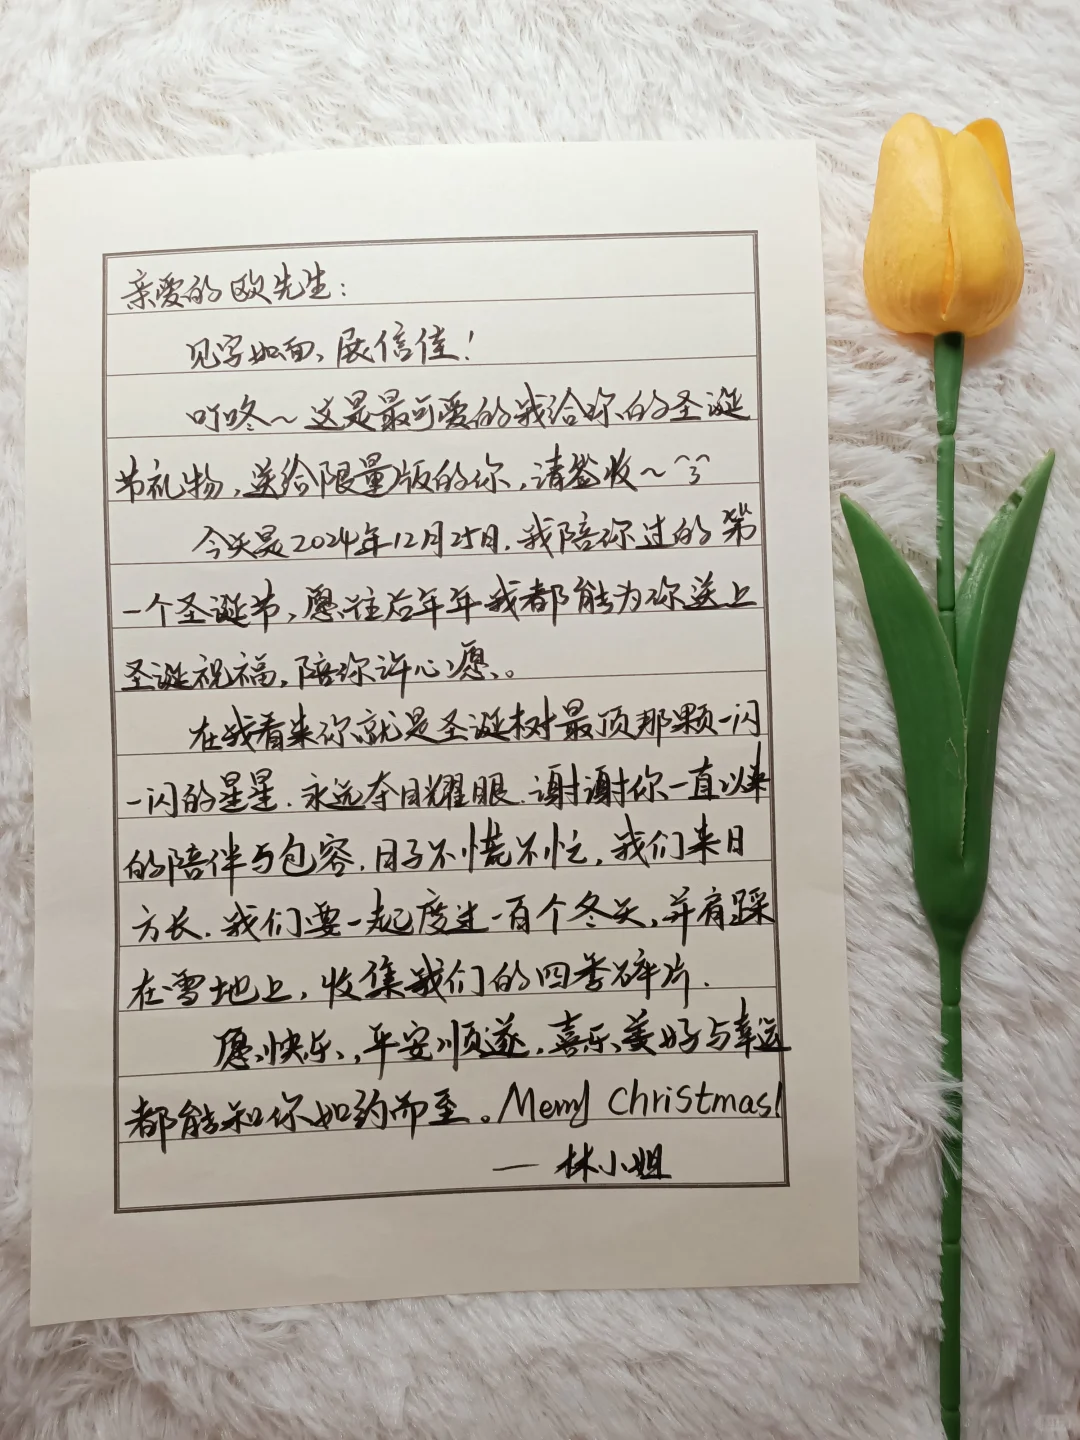 亲爱的欧先生：
见字如面、展信佳！
叮咚～这是最可爱的我给你的圣诞
节礼物，送给限量版的你，请签收～
今天是2024年12月25日.我陪你过的第
一个圣诞节，愿往后年年我都能为你送上
圣诞祝福，陪你许心愿。
在我看来你就是圣诞树最顶那颗一闪
一闪的星星.永远夺目耀眼.谢谢你一直以来
的陪伴与包容.日子不慌不忙，我们来日
方长.我们要一起度过一百个冬天，并肩踩
在雪地上，收集我们的四季碎片.
愿快乐，平安顺遂，喜乐美好与幸运
都能和你如约而至。Merry Christmas!
— 林小姐